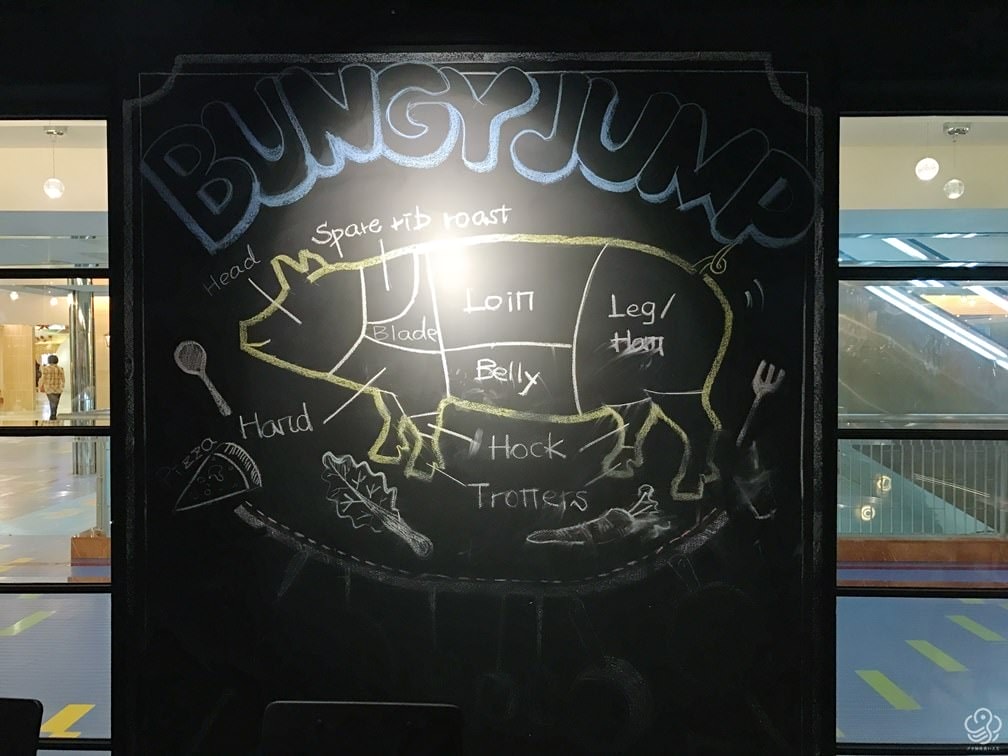 BUNGY JUMP
Spare rib roast
Head
Loin
Leg/
Ham
Blade
Belly
Hand
Hock
Trotters
Pizza